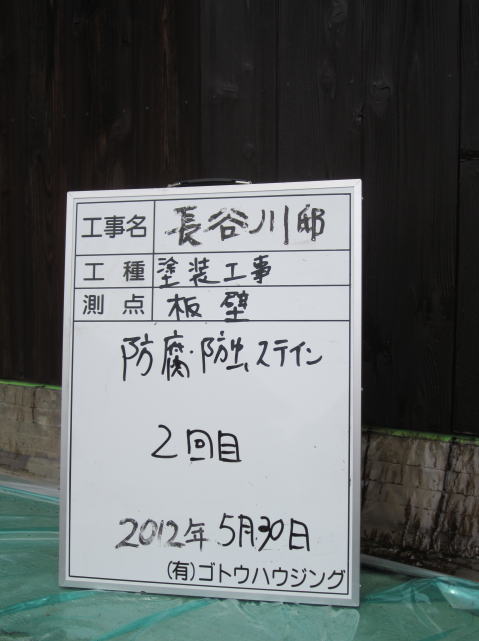 工事名 長谷川邸
工種 塗装工事
測点 板壁
防腐・防虫ステイン
2回目
2012年5月30日
(有)ゴトウハウジング